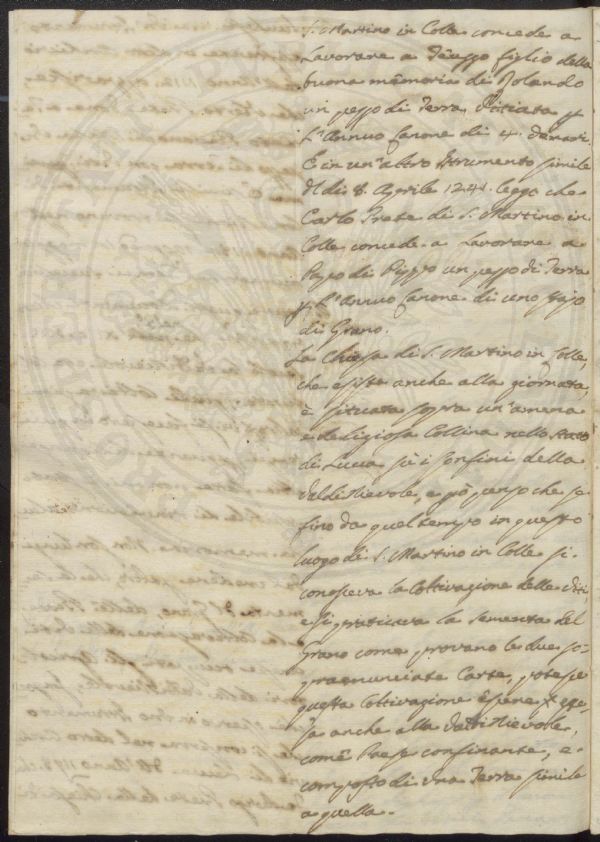 S. Martino in Colle concede a
Lavorare a Teuzzo figlio della
buona memoria di Rolando
un pezzo di Terra Vitiata p
L'Annuo Canone di 4. denari.
E in un'altro Strumento simile
dì 8. Aprile 1241. leggo che
Carlo Prete di S. Martino in
Colle concede a Lavorare a
Papo di Pippo un pezzo di Terra
p L'Annuo Canone di uno stajo
di Grano.
La Chiesa di S. Martino in Colle,
che esiste anche alla giornata,
è situata sopra un'amena
e deliziosa Collina nello Stato
di Lucca sù i Confini della
Valdinievole, e già penso che se
fino da quel tempo in questo
luogo di S. Martino in Colle si
conosceva la Coltivazione delle Viti
e si praticava la sementa del
Grano come provano le due so=
praenunciate Carte, potesse
questa Coltivazione essere
sa anche alla Valdinievole,
come Paese confinante, e
composto di una Terra simile
a quella.